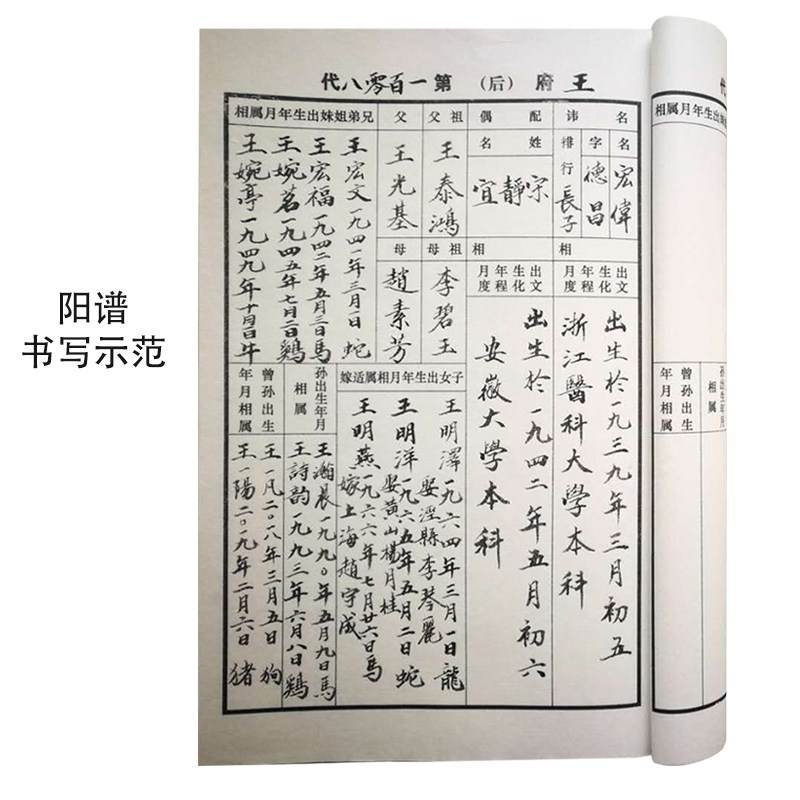 阳谱
书写示范
王府(后)第一百零八代
名讳
名
宏偉
字
德昌
排行
長子
相
出生年月
文化程度
出生於一九三九年三月初五
浙江醫科大學本科
配偶
姓名
宋靜宜
相
出生年月
文化程度
出生於一九四二年五月初六
安徽大學本科
祖父
王泰鴻
祖母
李碧玉
父
王光基
母
趙素芳
兄弟姐妹出生年月属相
王宏文一九四一年三月一日蛇
王宏福一九四二年五月三日馬
王婉茗一九四五年七月二日鷄
王婉亭一九四九年十月四日牛
子女出生年月相属适嫁
王明澤一九六四年三月一日龍
娶涇縣李琴麗
王明洋一九六五年五月二日蛇
娶黄山楊月桂
王明燕一九六六年七月廿六日馬
嫁上海趙宇成
孙出生年月
相属
王瀚晨一九九〇年五月九日馬
王詩韵一九九三年六月八日鷄
曾孙出生
年月相属
王一凡二〇一八年三月五日狗
王一陽二〇一九年二月六日猪
代
兄弟姐妹出生年月属相
孙出生年月
相属
曾孙出生
年月相属